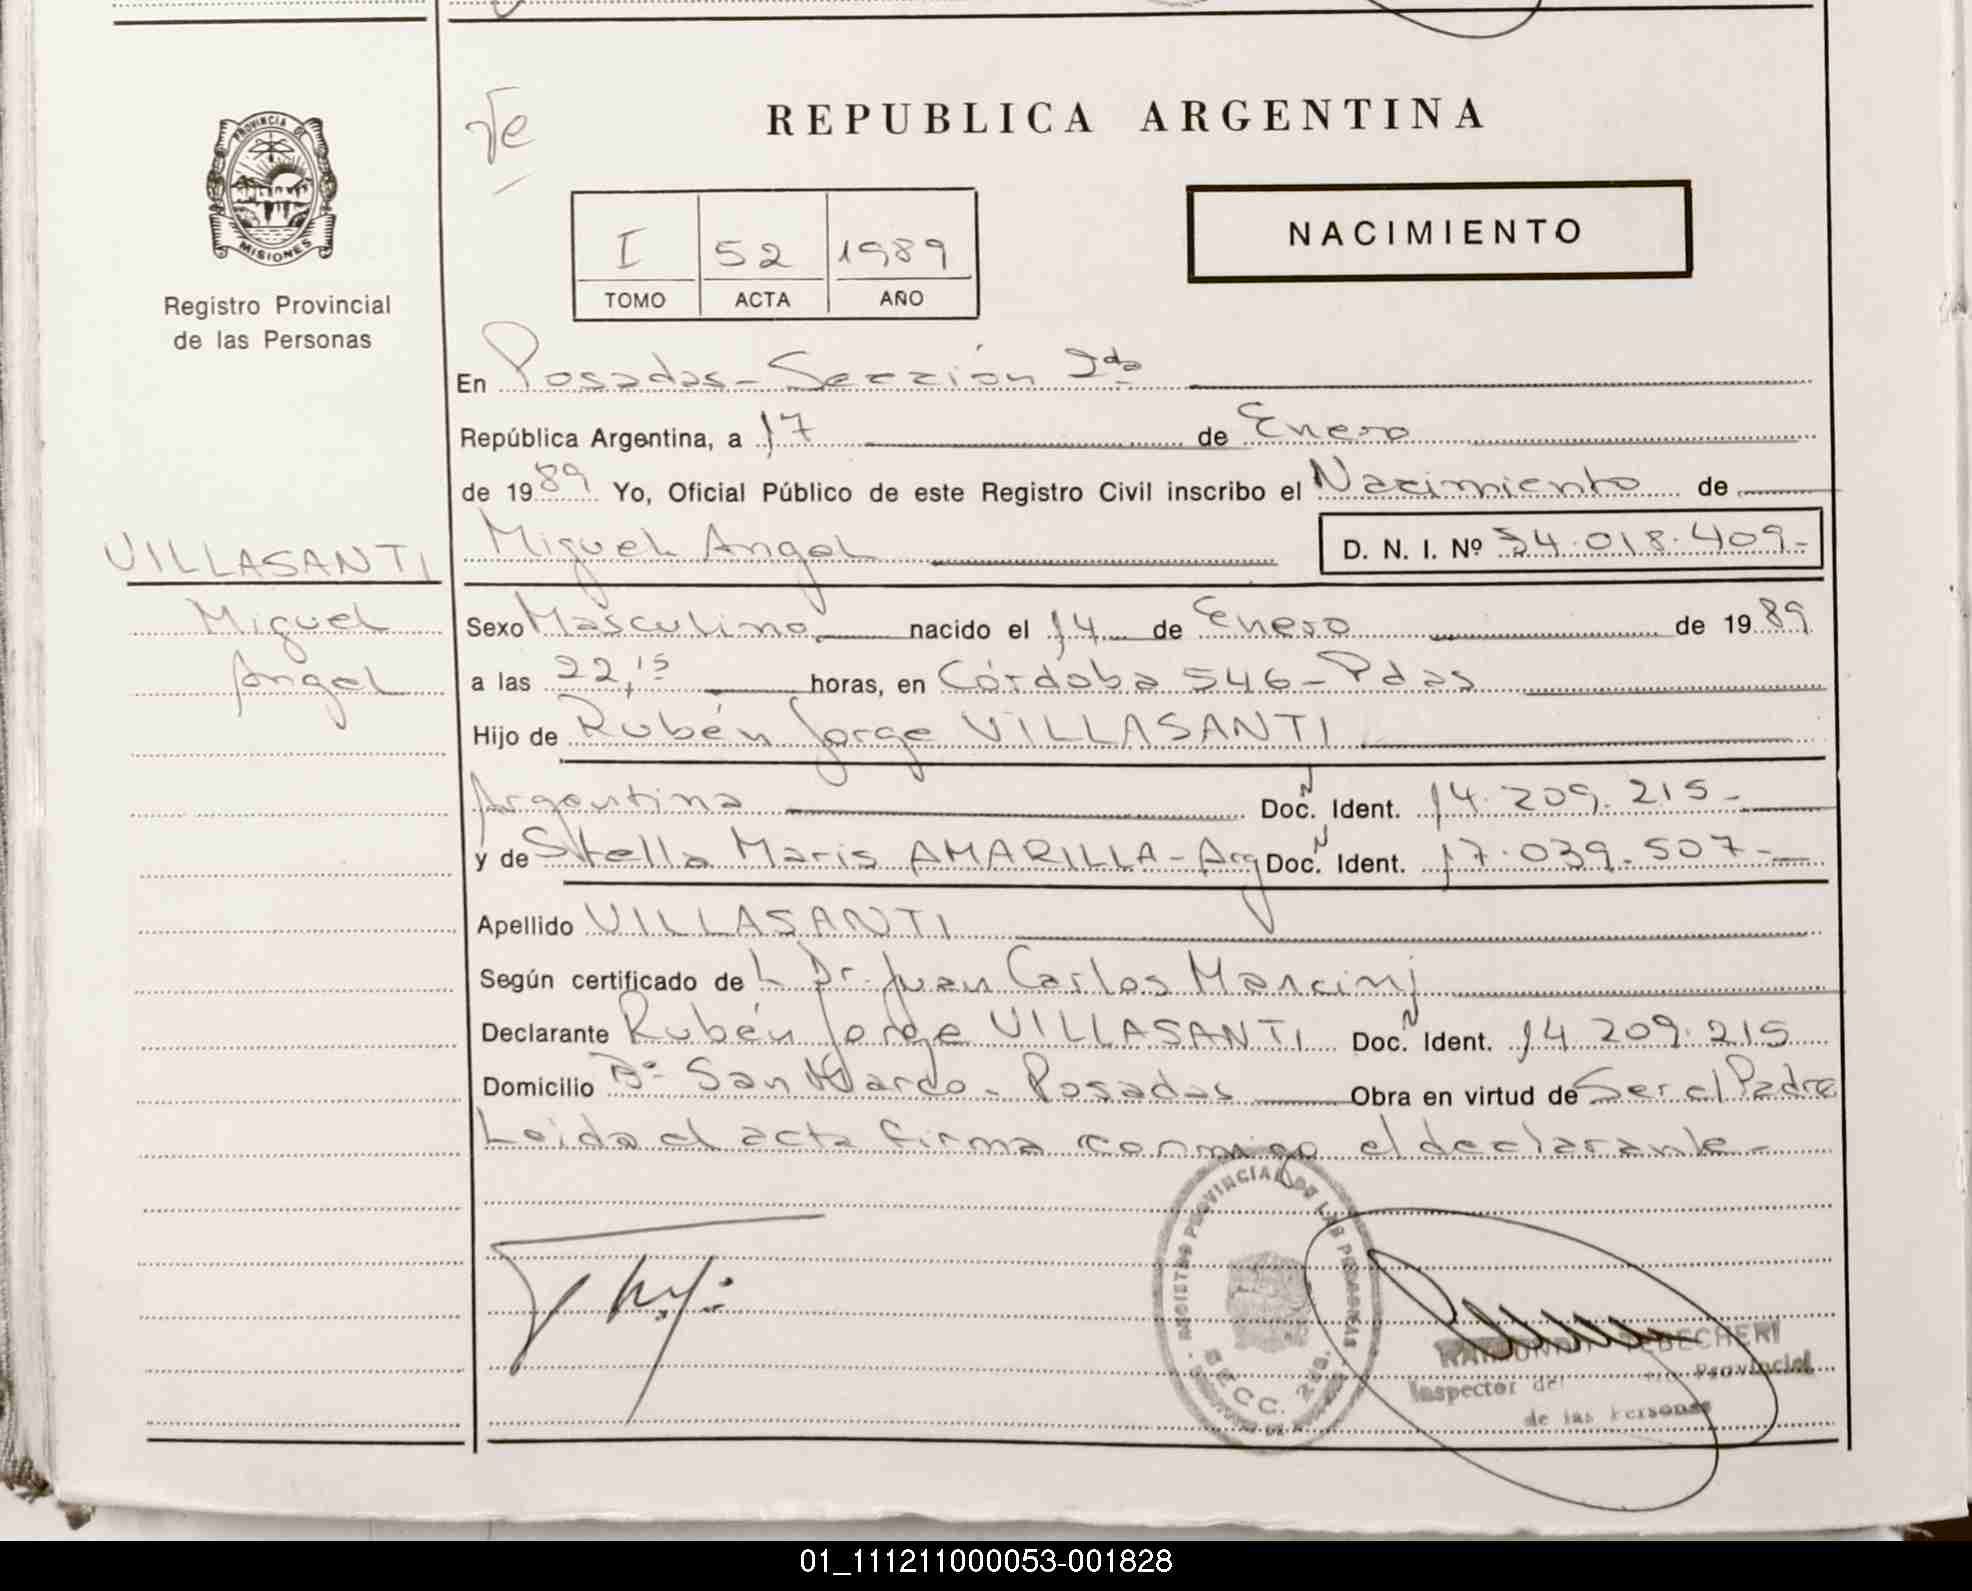 REPUBLICA ARGENTINA
PROVINCIA DE
MISIONES
Registro Provincial
de las Personas
I 52 1989
TOMO ACTA AÑO
NACIMIENTO
En Posadas - Sección 2da
República Argentina, a 17 de Enero
de 1989 Yo, Oficial Público de este Registro Civil inscribo el Nacimiento de
VILLASANTI
Miguel
Angel
Miguel Angel D. N. I. Nº 34.018.409-
Sexo Masculino nacido el 14 de Enero de 1989
a las 22,15 horas, en Córdoba 546 - Pdas
Hijo de Rubén Jorge VILLASANTI
Argentina Doc. N Ident. 14.209.215-
y de Stella Maris AMARILLA - Arg Doc. N Ident. 17.039.507-
Apellido VILLASANTI
Según certificado de L Dr. Juan Carlos Mancini
Declarante Rubén Jorge VILLASANTI Doc. N Ident. 14.209.215
Domicilio Bº San Marco - Posadas Obra en virtud de Ser el Padre
Leida el acta firma conmigo el declarante -
REGISTRO PROVINCIAL DE LAS PERSONAS
SECC. 2da.
Inspector del Provincial
de las Personas
01_111211000053-001828